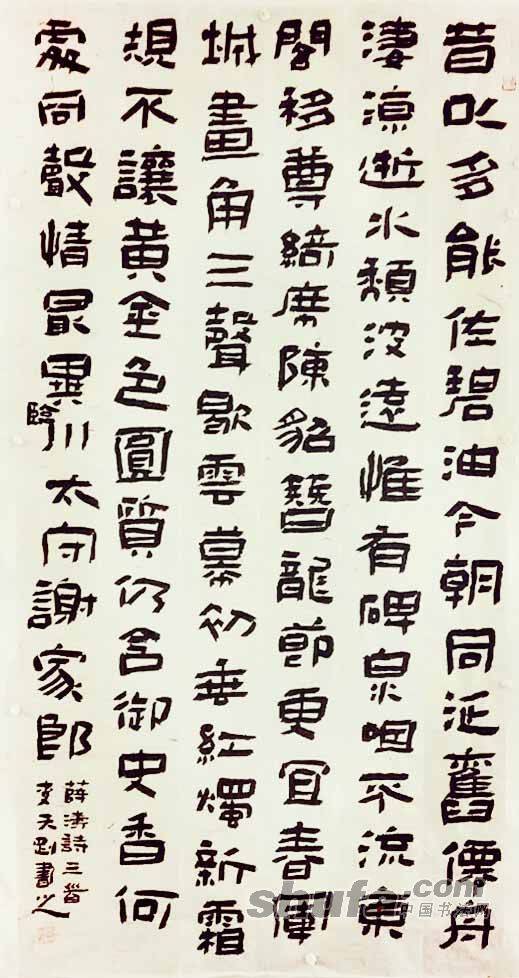 昔以多能佐碧油今朝同泛舊僊舟
淒涼逝水頹波遠惟有碑泉咽不流東
閣移尊綺席陳貂簪龍節更宜春軍
城畫角三聲歇雲幕初垂紅燭新霜
規不讓黃金色圓質仍含御史香何
處同聲情最異臨川太守謝家郎
薛濤詩三首
天書之
shufa.com
中国书法网